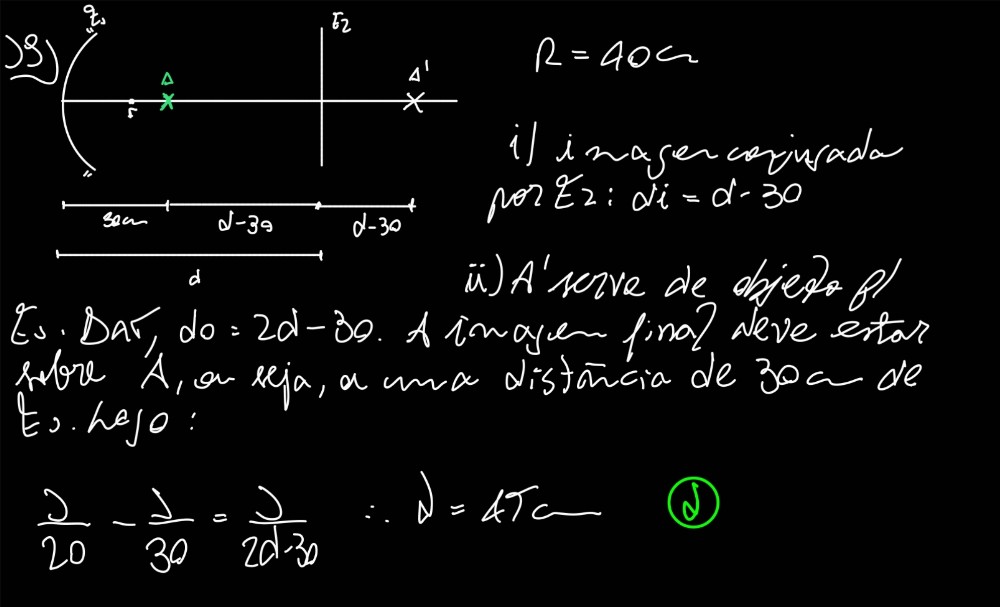 19)
E₁
E₂
R = 40cm
A
A'
F
i) imagem conjugada
por E₂: di = d-30
30cm
d-30
d-30
d
ii) A' serve de objeto p/
E₁. Daí, do = 2d-30. A imagem final deve estar
sobre A, ou seja, a uma distância de 30cm de
E₁. Logo:
1/20 - 1/30 = 1/2d-30 ∴ d = 45cm
d